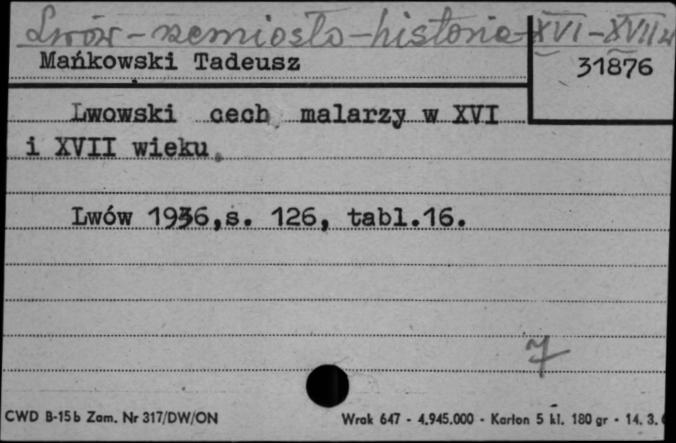 Lwów - rzemiosło - historia - XVI - XVII w
Mańkowski Tadeusz
31876
Lwowski cech malarzy w XVI
i XVII wieku
Lwów 1936, s. 126, tabl.16.
7
CWD B-15b Zam. Nr 317/DW/ON
Wrak 647 - 4.945.000 - Karton 5 kl. 180 gr - 14. 3.